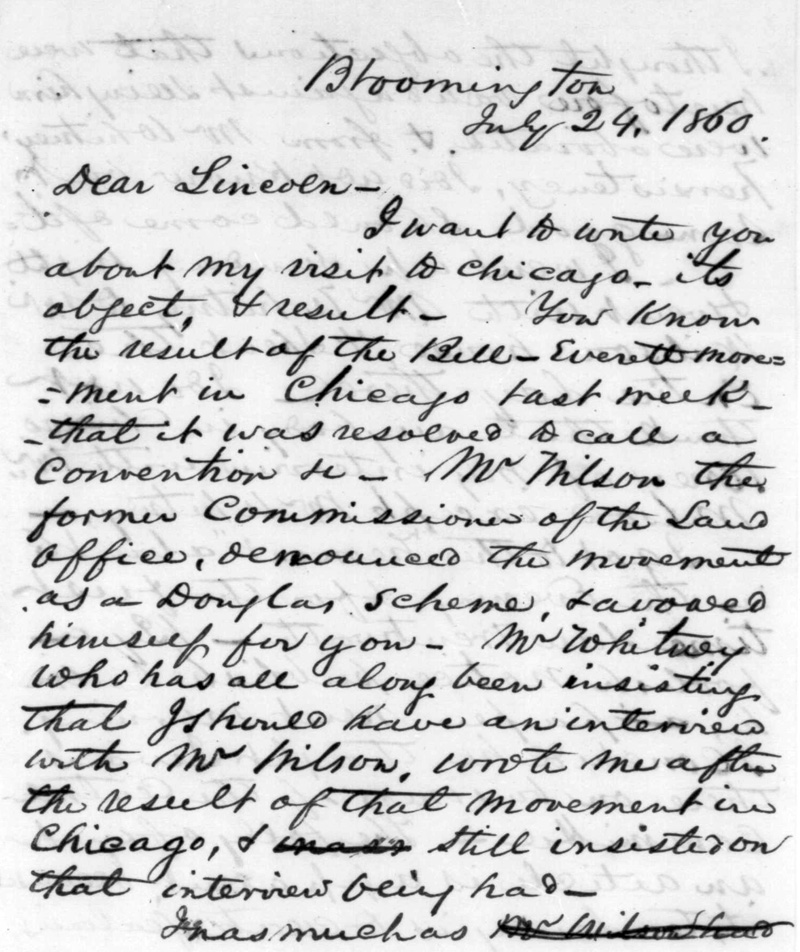 Bloomington
July 24, 1860.
Dear Lincoln—
I want to write you
about my visit to Chicago— its
object, & result— You Know
the result of the Bell–Everett move=
=ment in Chicago last week—
—that it was resolved to call a
Convention &c— Mr Wilson the
former Commissioner of the Land
office, denounced the movement
as a Douglas scheme, & avowed
himself for you— Mr Whitney
who has all along been insisting
that I should have an interview
with Mr Wilson, wrote me after
the result of that movement in
Chicago, & still insisted on
that interview being had—
Inasmuch as Mr Wilson had